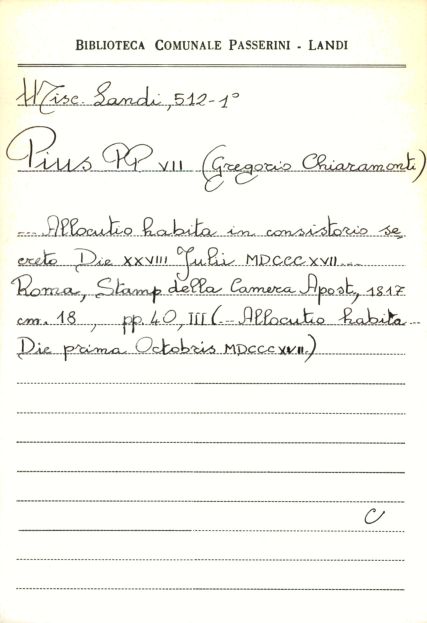 BIBLIOTECA COMUNALE PASSERINI - LANDI
Misc. Landi, 512-1°
Pius PP VII (Gregorio Chiaramonti)
... Allocutio habita in consistorio se_
creto Die XXVIII Julii MDCCCXVII...
Roma, Stamp della Camera Apost, 1817
cm. 18 , pp. 40, III (... Allocutio habita ...
Die prima Octobris MDCCCXVII.)
C